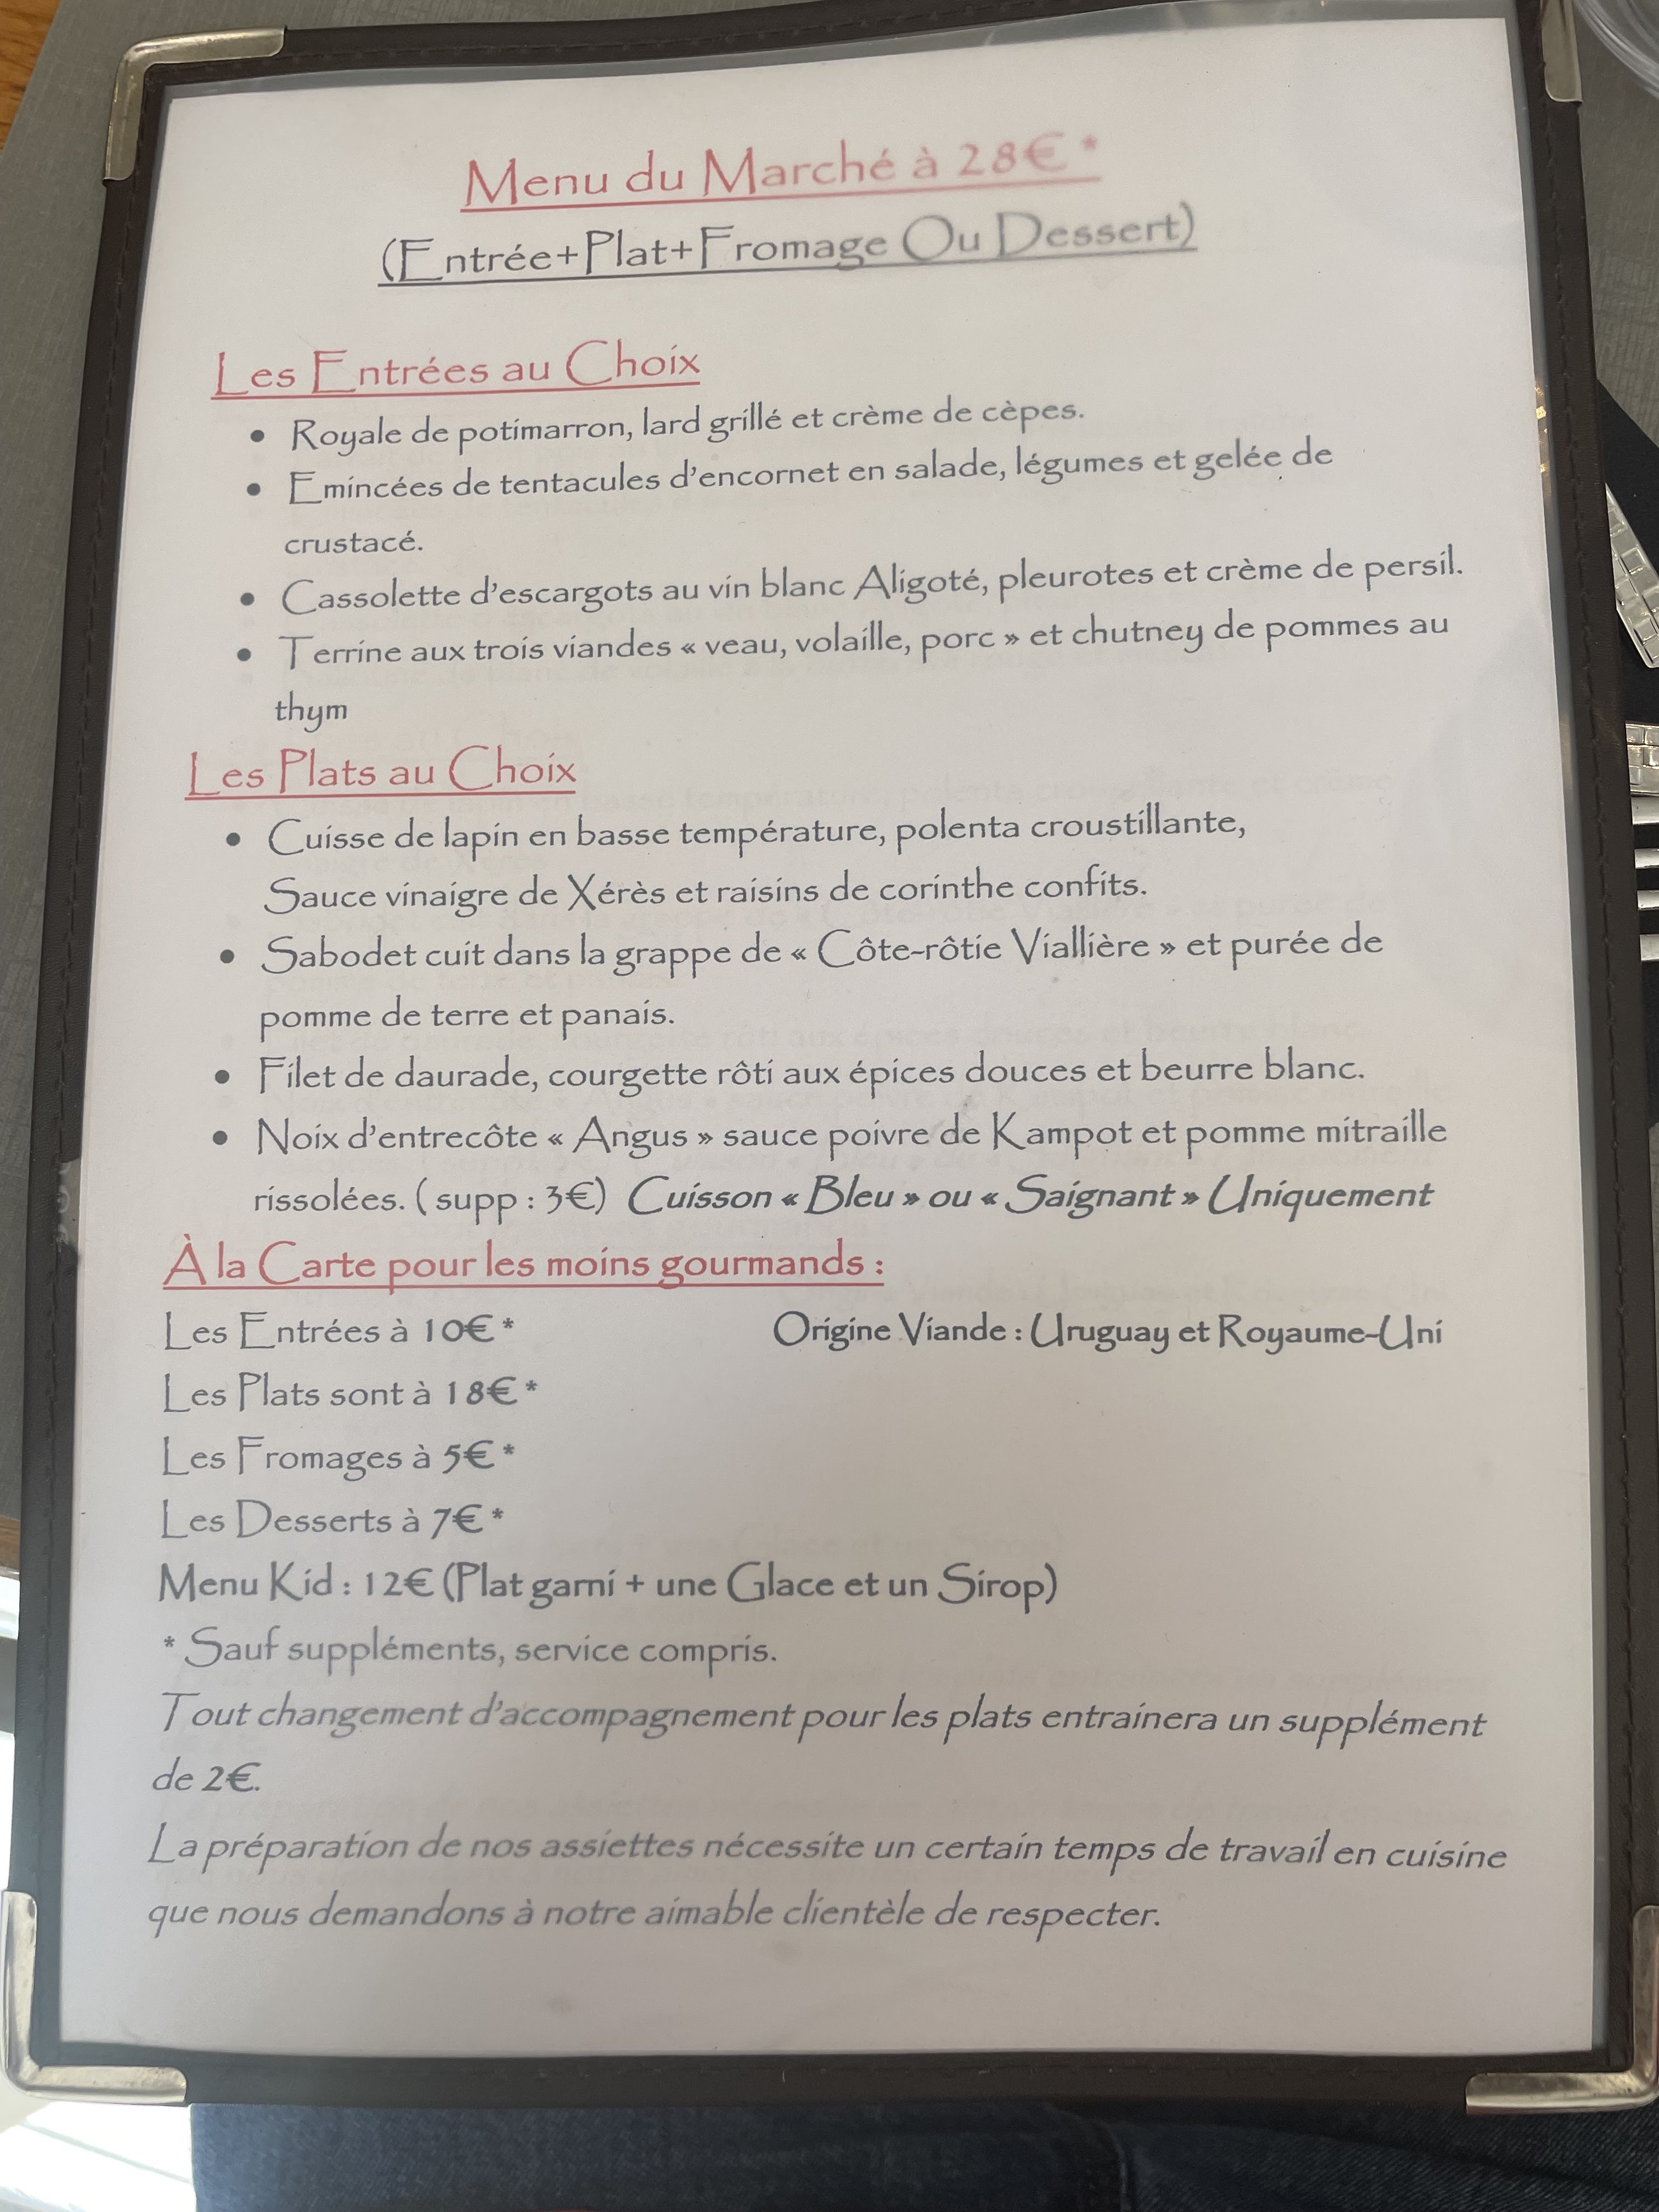 Menu du Marché à 28€ *
(Entrée+Plat+Fromage Ou Dessert)
Les Entrées au Choix
• Royale de potimarron, lard grillé et crème de cèpes.
• Emincées de tentacules d'encornet en salade, légumes et gelée de
crustacé.
• Cassolette d'escargots au vin blanc Aligoté, pleurotes et crème de persil.
• Terrine aux trois viandes « veau, volaille, porc » et chutney de pommes au
thym
Les Plats au Choix
• Cuisse de lapin en basse température, polenta croustillante,
Sauce vinaigre de Xérès et raisins de corinthe confits.
• Sabodet cuit dans la grappe de « Côte-rôtie Viallière » et purée de
pomme de terre et panais.
• Filet de daurade, courgette rôti aux épices douces et beurre blanc.
• Noix d'entrecôte « Angus » sauce poivre de Kampot et pomme mitraille
rissolées. ( supp : 3€) Cuisson « Bleu » ou « Saignant » Uniquement
À la Carte pour les moins gourmands :
Les Entrées à 10€ * Origine Viande : Uruguay et Royaume-Uni
Les Plats sont à 18€ *
Les Fromages à 5€ *
Les Desserts à 7€ *
Menu Kid : 12€ (Plat garni + une Glace et un Sirop)
* Sauf suppléments, service compris.
Tout changement d'accompagnement pour les plats entrainera un supplément
de 2€.
La préparation de nos assiettes nécessite un certain temps de travail en cuisine
que nous demandons à notre aimable clientèle de respecter.